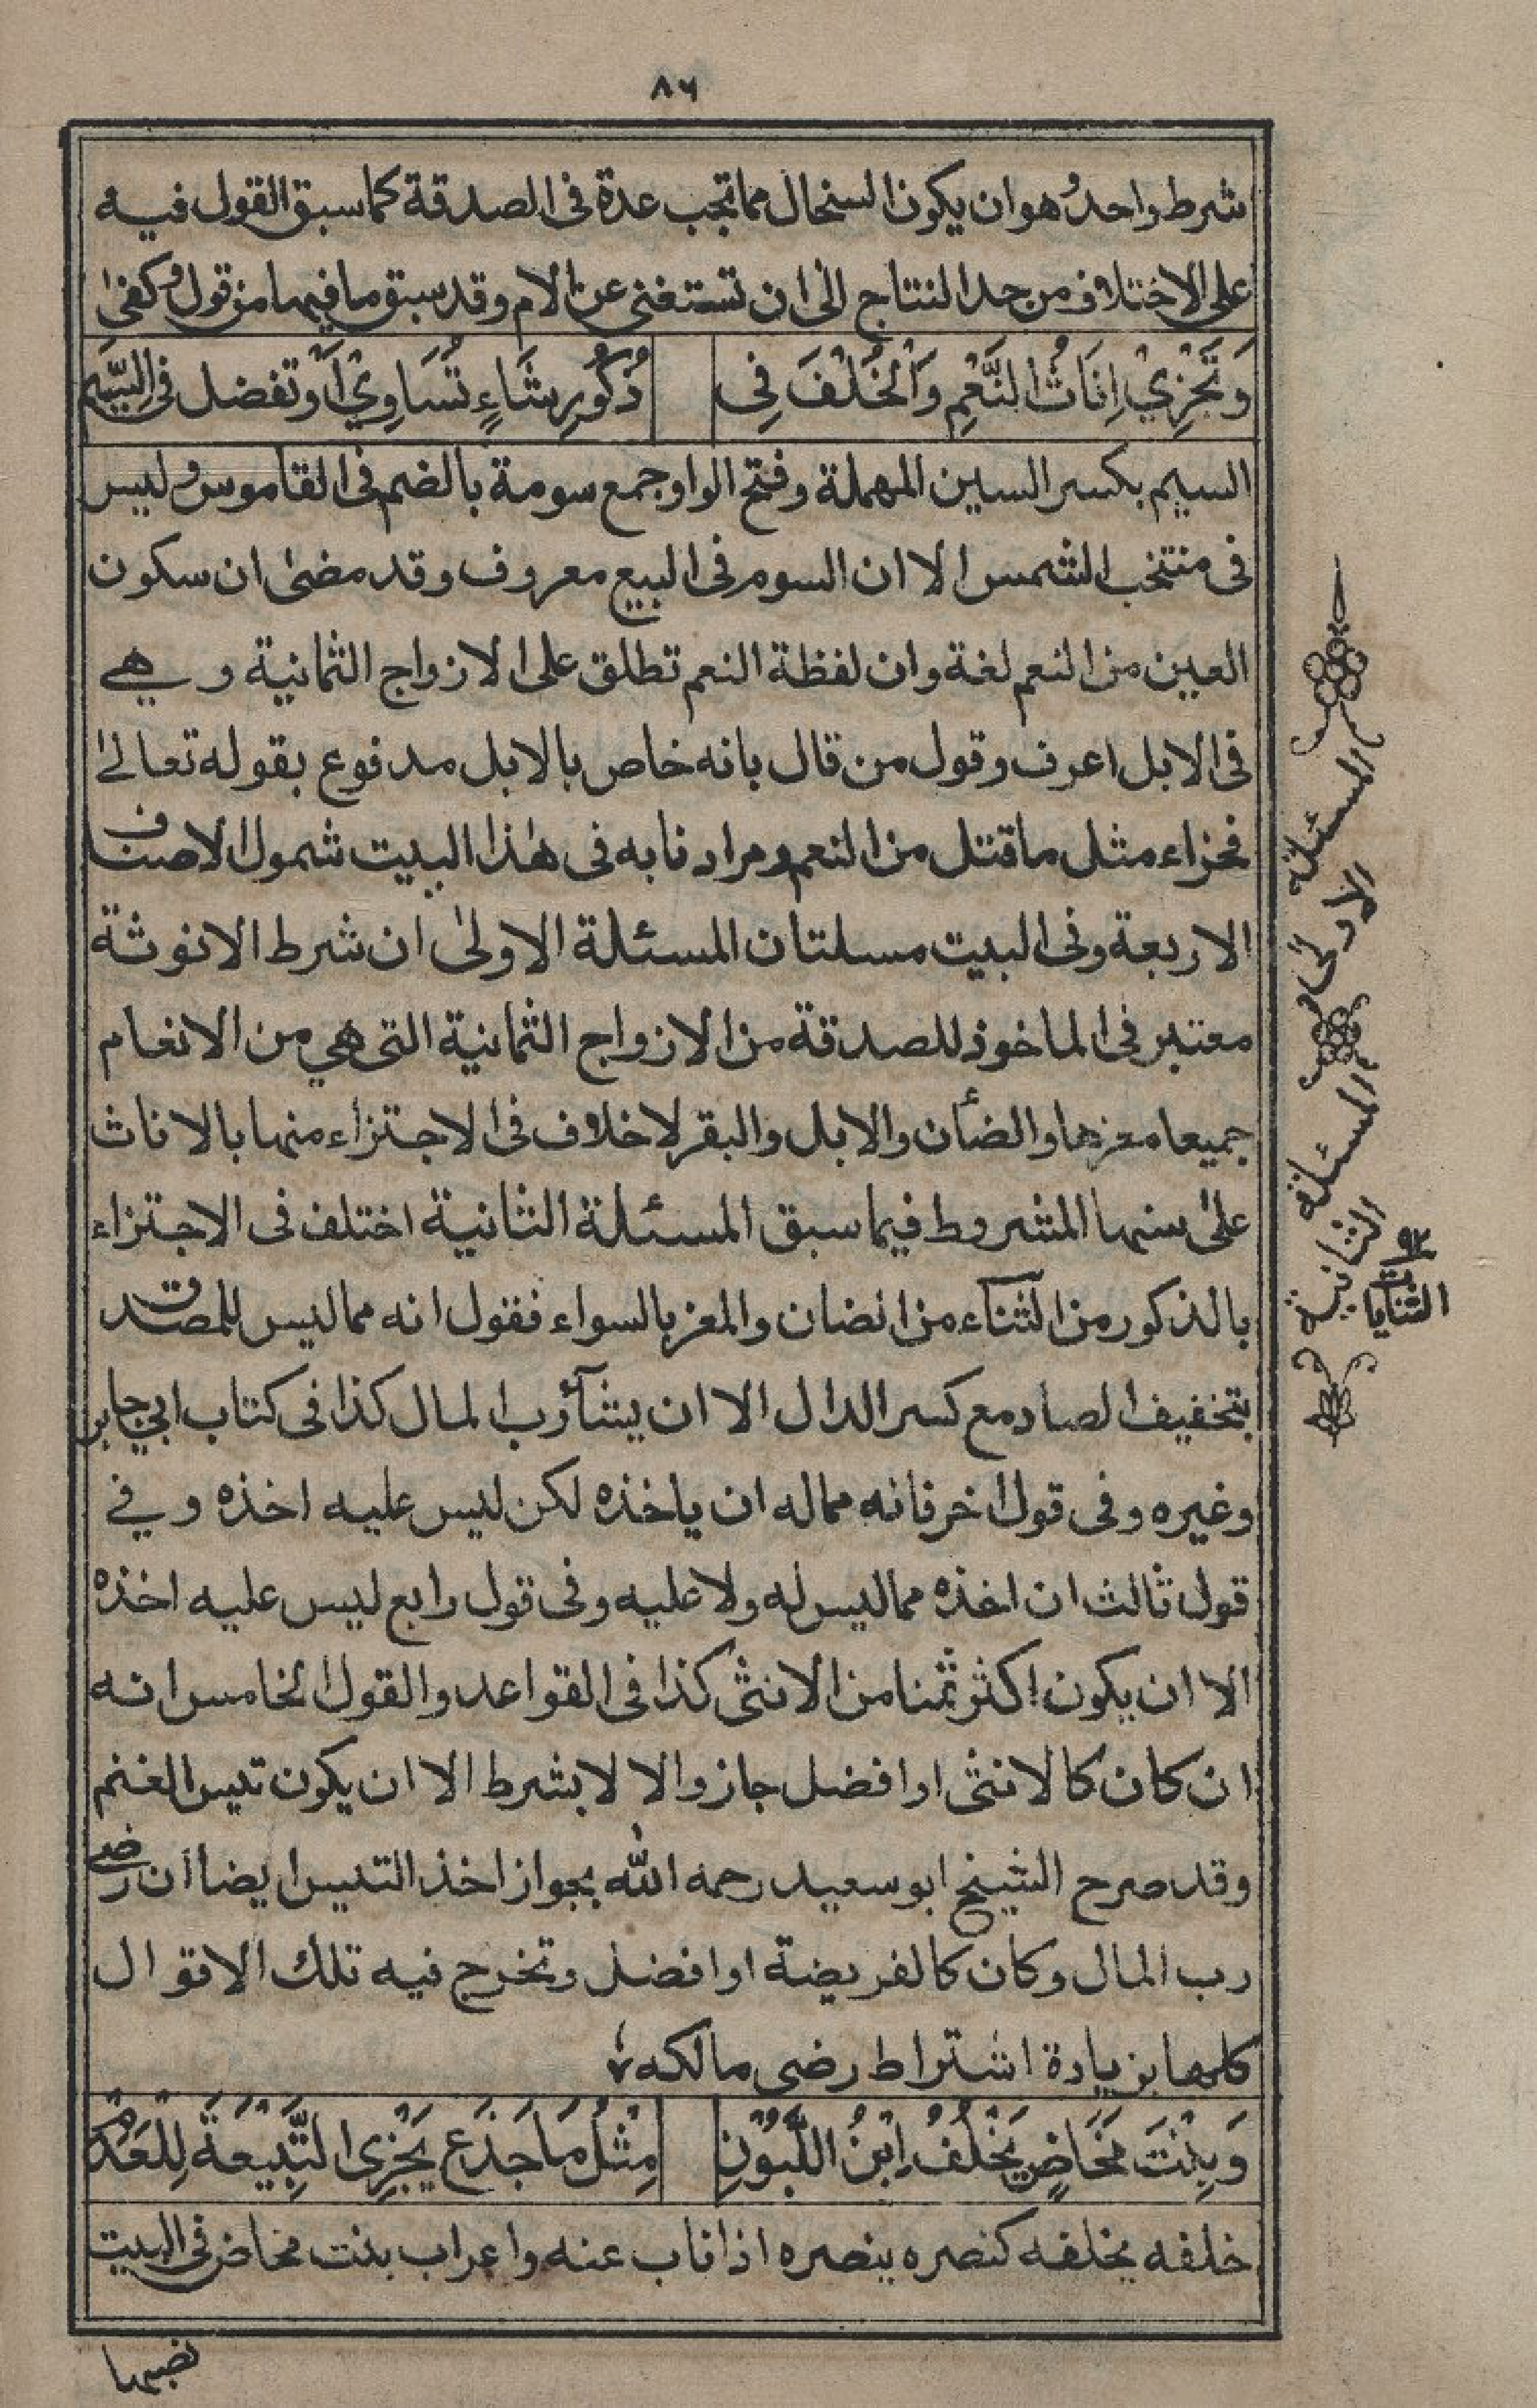 ٨٦
شرط واحد وهو ان يكون السخال مما تجب عدة فى الصدقة كما سبق القول فيه
على الاختلاف من حد النتاج الى ان تستغنى عن الام وقد سبق ما فيها من قول وكفى
وَتَجْزِيْ اِنَاثُ النَّعْمِ وَالْخُلْفَ فِى ذُكُورِ شَاءٍ تُسَاوِيْ اَوْ تفضل فى السِّيَم
السيم بكسر السين المهملة وفتح الواو جمع سومة بالضم فى القاموس وليس
فى منتخب الشمس الا ان السوم فى البيع معروف وقد مضى ان سكون
العين من النعم لغة وان لفظة النعم تطلق على الازواج الثمانية وهي
فى الابل اعرف وقول من قال بانه خاص بالابل مدفوع بقوله تعالى
فجزاء مثل ما قتل من النعم ومرادنا به فى هذا البيت شمول الاصناف
الاربعة وفى البيت مسلتان المسئلة الاولى ان شرط الانوثة
معتبر فى الماخوذ للصدقة من الازواج الثمانية التى هي من الانعام
جميعا معزها والضأن والابل والبقر لا خلاف فى الاجتزاء منها بالاناث
على سنها المشروط فيما سبق المسئلة الثانية اختلف فى الاجتزاء
بالذكور من الثناء من الضان والمعز بالسواء فقول انه مما ليس للمصدق
بتخفيف الصاد مع كسر الدال الا ان يشآء رب المال كذا فى كتاب ابي جابر
وغيره وفى قول اخر فانه مما له ان ياخذه لكن ليس عليه اخذه وفي
قول ثالث ان اخذه مما ليس له ولا عليه وفى قول رابع ليس عليه اخذه
الا ان يكون اكثر ثمنا من الانثى كذا فى القواعد والقول الخامس انه
ان كان كالانثى او افضل جاز والا لا بشرط الا ان يكون تيس الغنم
وقد صرح الشيخ ابو سعيد رحمه الله بجواز اخذ التيس ايضا ان رضي
رب المال وكان كالفريضة او افضل وتخرج فيه تلك الاقوال
كلها بزيادة اشتراط رضى مالكه
وَبِنْتَ مَخَاضٍ يَخْلُفُ اِبْنُ اللَّبُوْنِ مِثْلُ مَا جَذَع يَجْزِى التَّبِيْعَةَ لِلْعَدَمْ
خلفه يخلفه كنصره ينصره اذا ناب عنه واعراب بنت مخاض فى البيت
نصبها
المسئلة الاولى
المسئلة الثانية
٩٢
الثنايا